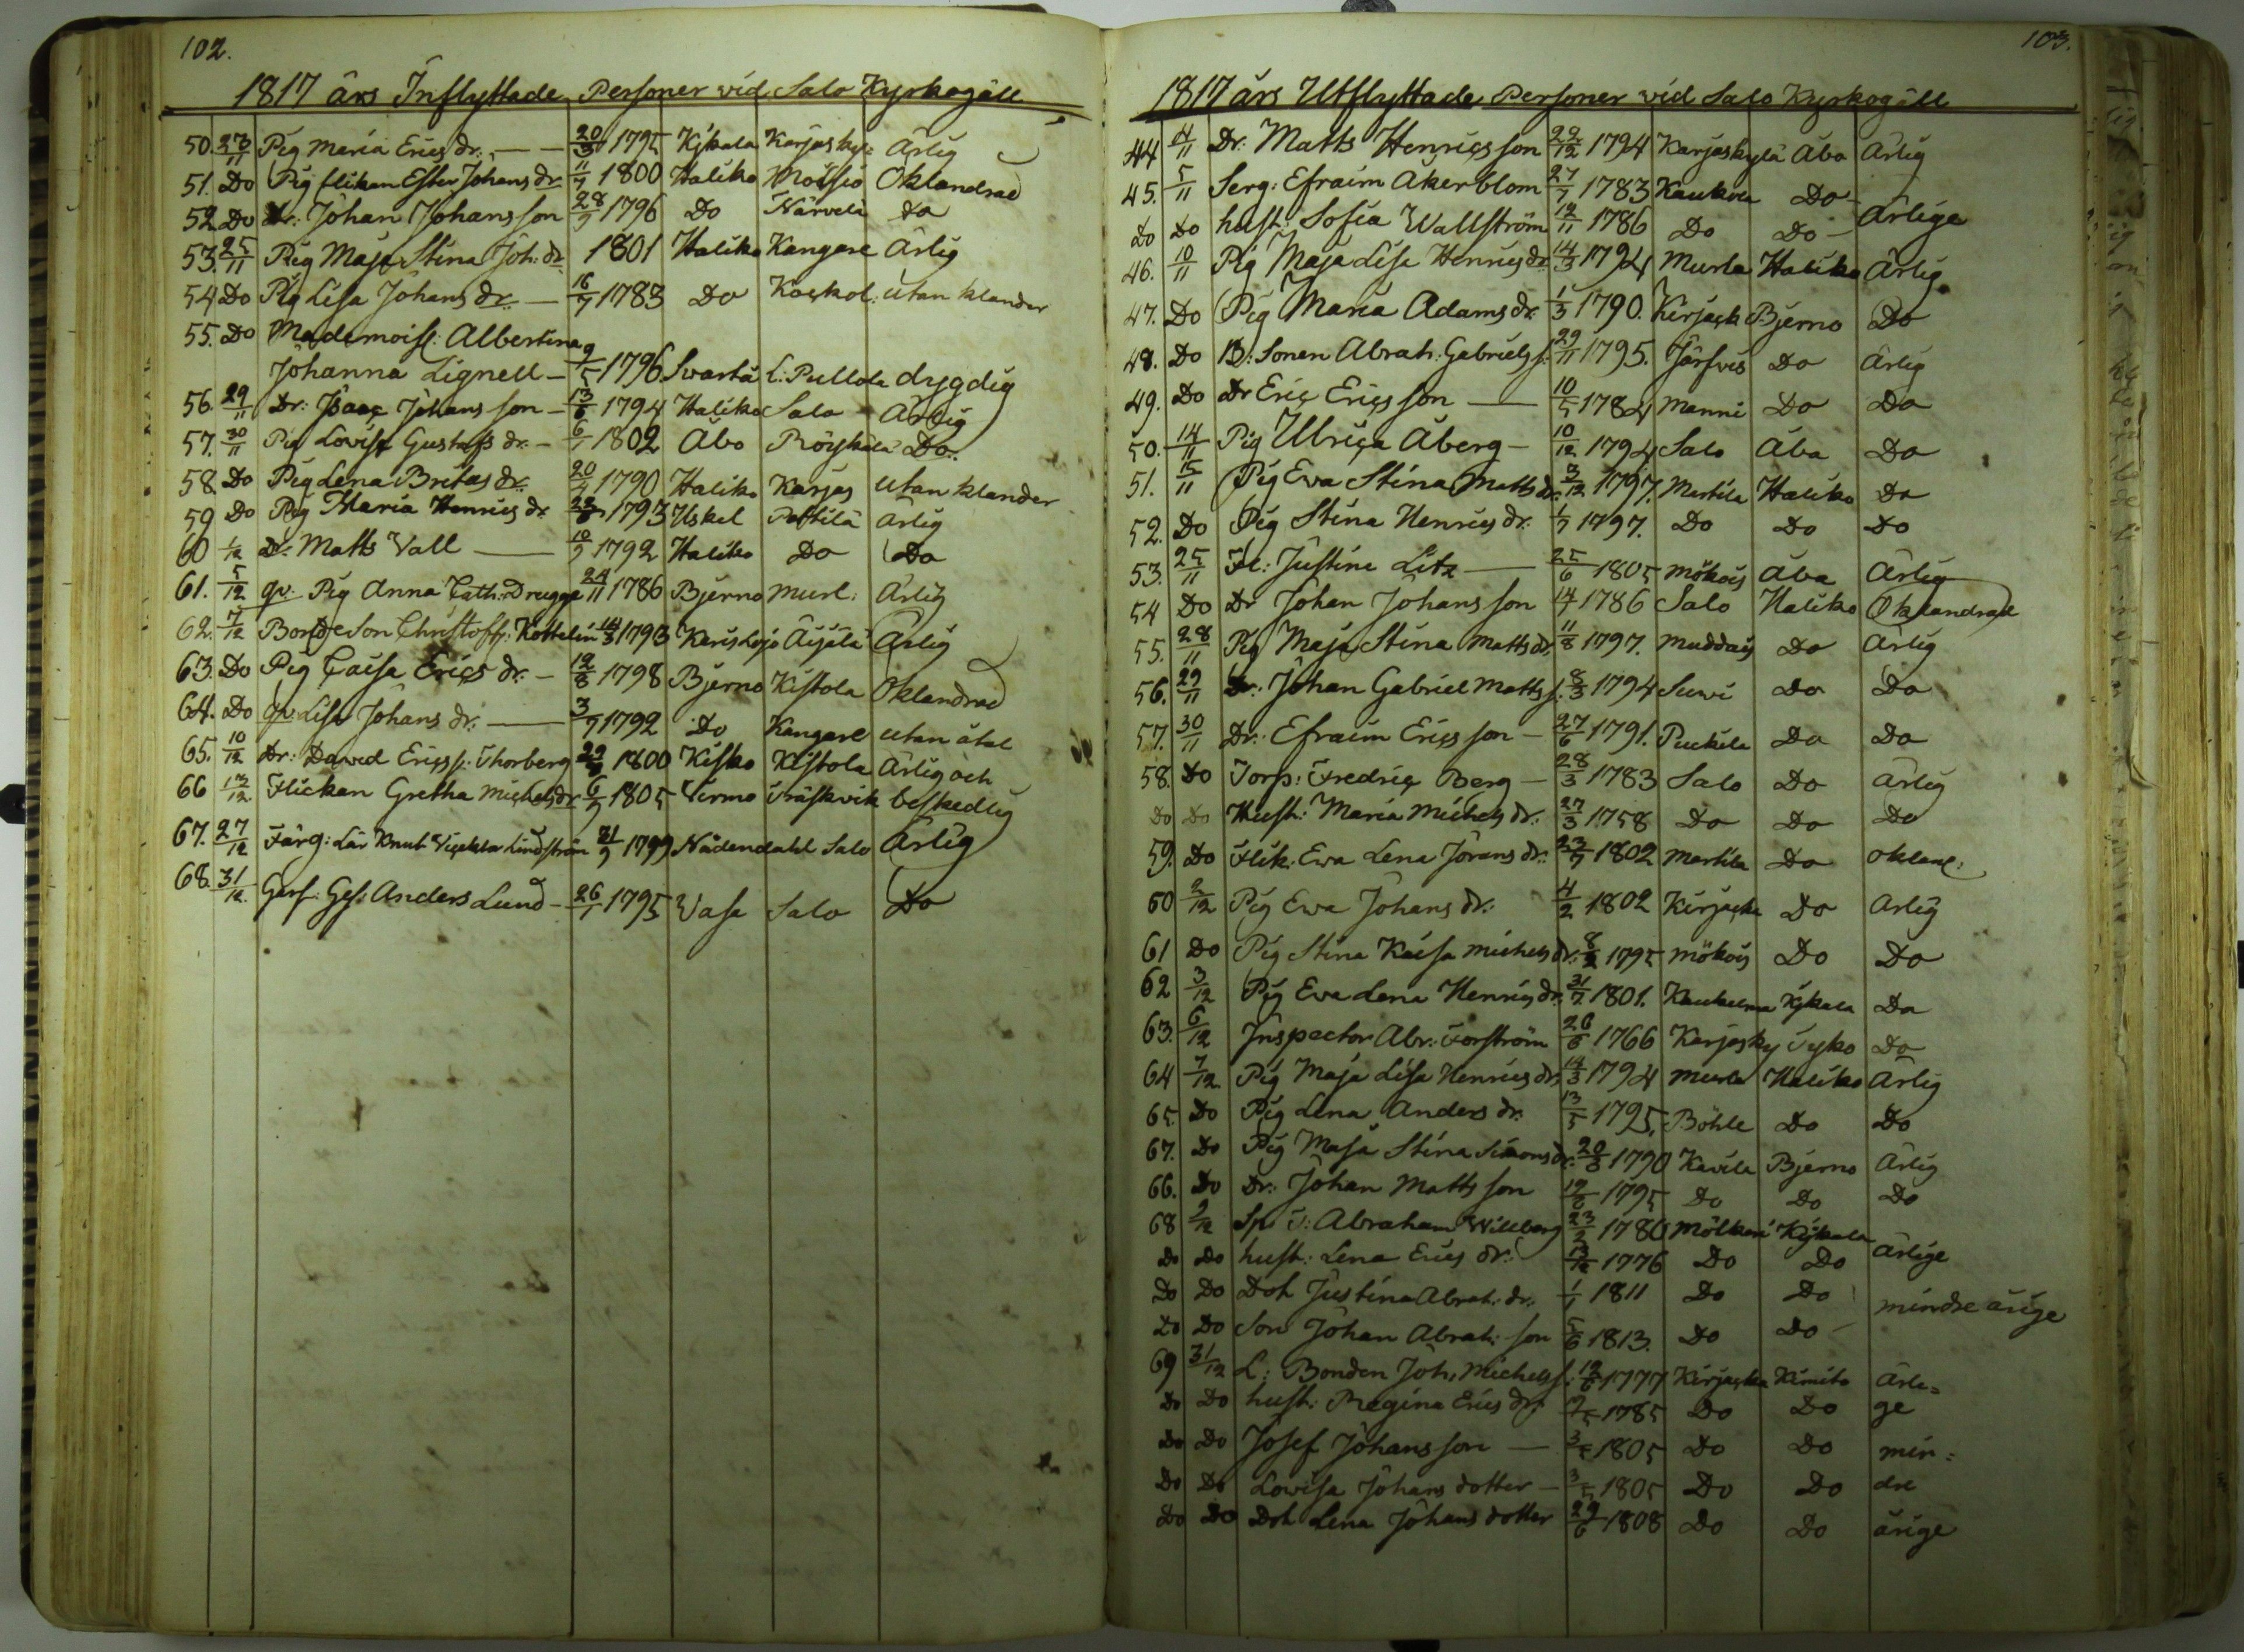 102.
1817 års Inflyttade Personer vid Salo Kyrkogäll
50. 27/11 Pig Maria Erics dr. — 20/3 1795 Kjkala Karjaskyl: Ärlig
51. Do Pig flikan Ester Johans dr 11/7 1800 Haliko Moisio Oklandrad
52 Do Dr: Johan Johansson 28/9 1796 Do Närvelä do
53. 25/11 Pig Maja Stina Joh: dr 1801 Haliko Kangare Ärlig
54 Do Pig Lisa Johans dr. — 16/7 1783 Do Koskol: utan klander
55. Do Mademoisl: Albertina
Johanna Lignell — 9/5 1796. Svartå L: Pullola dygdig
56. 29/11 Dr: Isaac Johansson — 13/6 1794 Haliko Salo Ärlig
57. 30/11 Pig Lovisa Gustafs dr. — 6/1 1802 Åbo Röyskälä Do.
58. Do Pig Lena Britas dr. 20/7 1790 Haliko Karjas utan klander
59 Do Pig Maria Henrics dr. 1793 Uskel Pettilä ärlig
60 1/12 Dr. Matts Vall — 10/9 1792 Haliko Do Do
61. 5/12 qv. Pig Anna Cath: Drugge 24/11 1786 Bjerno Murl: Ärlig
62. 7/12 Bondeson Christoff: Kottelin 14/3 1793 Karislojo Äijälä Ärlig
63. Do Pig Caisa Erics dr. — 12/8 1798 Bjerno Kistola Oklandrad
64. Do qv: Lisa Johans dr. — 3/7 1792 Do Kangare utan åtal
65. 10/12 Dr: David Ericss: Thorberg 1800 Kisko Kistola Ärlig och
66 13/12 Flickan Gretha Michels dr 6/7 1805 Virmo Träskvik beskedlig
67. 27/12 Färg: Lär Knut Lindström 21/9 1799 Nådendahl Salo Ärlig
68. 31/12. Garf: Ges: Anders Lund — 26/1 1795 Vasa Salo Do
103.
1817 års Utflyttade Personer vid Salo Kyrkogäll
44 4/11 Dr: Matts Henricsson 22/12 1794 Karjaskylä Åbo Ärlig
45. 5/11 Serg: Efraim Åkerblom 27/7 1783 Do
Do Do hust: Sofia Wallström 12/11 1786 Do Do — ärlige
46. 10/11 Pig Maja Lisa Henrics dr. 14/3 1794 Murla Haliko Ärlig.
47. Do Pig Maria Adams dr. 1/3 1790. Kirjack Bjerno Do
48. Do B: Sonen Abrah: Gabriels s: 29/11 1795. Järfvis Do Ärlig
49. Do Dr Eric Ericsson — 10/5 1784 Manni Do Do
50. 14/11 Pig Ulrica Åberg — 10/12 1794 Salo Åbo Do
51. 15/11 Pig Eva Stina Matts dr. 1797. Martila Haliko Do
52. Do Pig Stina Henrics dr. 1/7 1797. Do Do Do
53. 25/11 Fl: Justina Litz — 25/6 1805 Mökois Åbo Ärlig
54 Do Dr Johan Johansson 14/7 1786 Salo Haliko Oklandrad
55. 28/11 Pig Maja Stina Matts dr. 11/8 1797. Muddais Do Ärlig
56. 29/11 Dr: Johan Gabriel Matts s. 8/3 1794 Suvi Do Do
57. 30/11 Dr: Efraim Ericsson — 27/6 1791. Puckila Do Do
58. Do Torp: Fredric Berg — 28/3 1783 Salo Do Ärlig
Do Do Hust: Maria Michels dr. 27/3 1758 Do Do Do
59. Do Flik: Eva Lena Jörans dr. 23/7 1802 Martila Do oklan:
60 2/12 Pig Eva Johans dr. 4/2 1802 Kirjacka Do Ärlig
61 Do Pig Stina Kaisa Michels dr. 1795 Mökois Do Do
62 3/12 Pig Eva Lena Henrics dr. 31/7 1801. Kaukelma Kjkala Do
63. 6/12 Inspector Abr: Forström 26/6 1766 Karjasky Tyko Do
64 7/12 Pig Maja Lisa Henrics dr. 14/3 1794 Murla Haliko Ärlig
65. Do Pig Lena Anders dr. 13/5 1795. Böhle Do Do
67. Do Pig Maja Stina Simons dr. 20/8 1790 Kavila Bjerno Ärlig
66. Do Dr: Johan Mattsson 1795 Do Do Do
68 9/12 Abraham Willberg 1780 Mölkäri Kjkala
Do Do hust: Lena Erics dr. 1776 Do Do ärlige
Do Do Dot Justina Abrah: dr. 1/1 1811 Do Do
Do Do Son Johan Abrah: son 5/6 1813. Do Do — mindre årige
69 31/12 L: Bonden Joh: Michels s: 12/6 1777 Kirjacka Kimito Ärli=
Do Do hust: Regina Erics dr: 1785 Do Do ge
Do Do Josef Johansson — 1805 Do Do min=
Do Do Lovisa Johans dotter — 3/5 1805 Do Do dre
Do Do Dot Lena Johans dotter 29/6 1808 Do Do årige